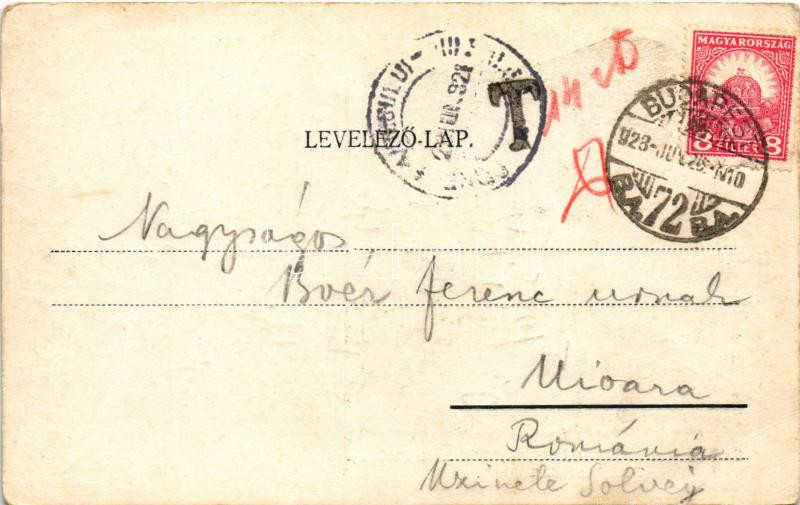 MAGYARORSZÁG
8 FILLÉR 8
BUDAPEST
928-JUN 26-N10
B.A. 72 B.A.
T
LEVELEZŐ-LAP.
Nagyságos
Boér Ferenc urnak
Uioara
Románia
Uzinele Solvey